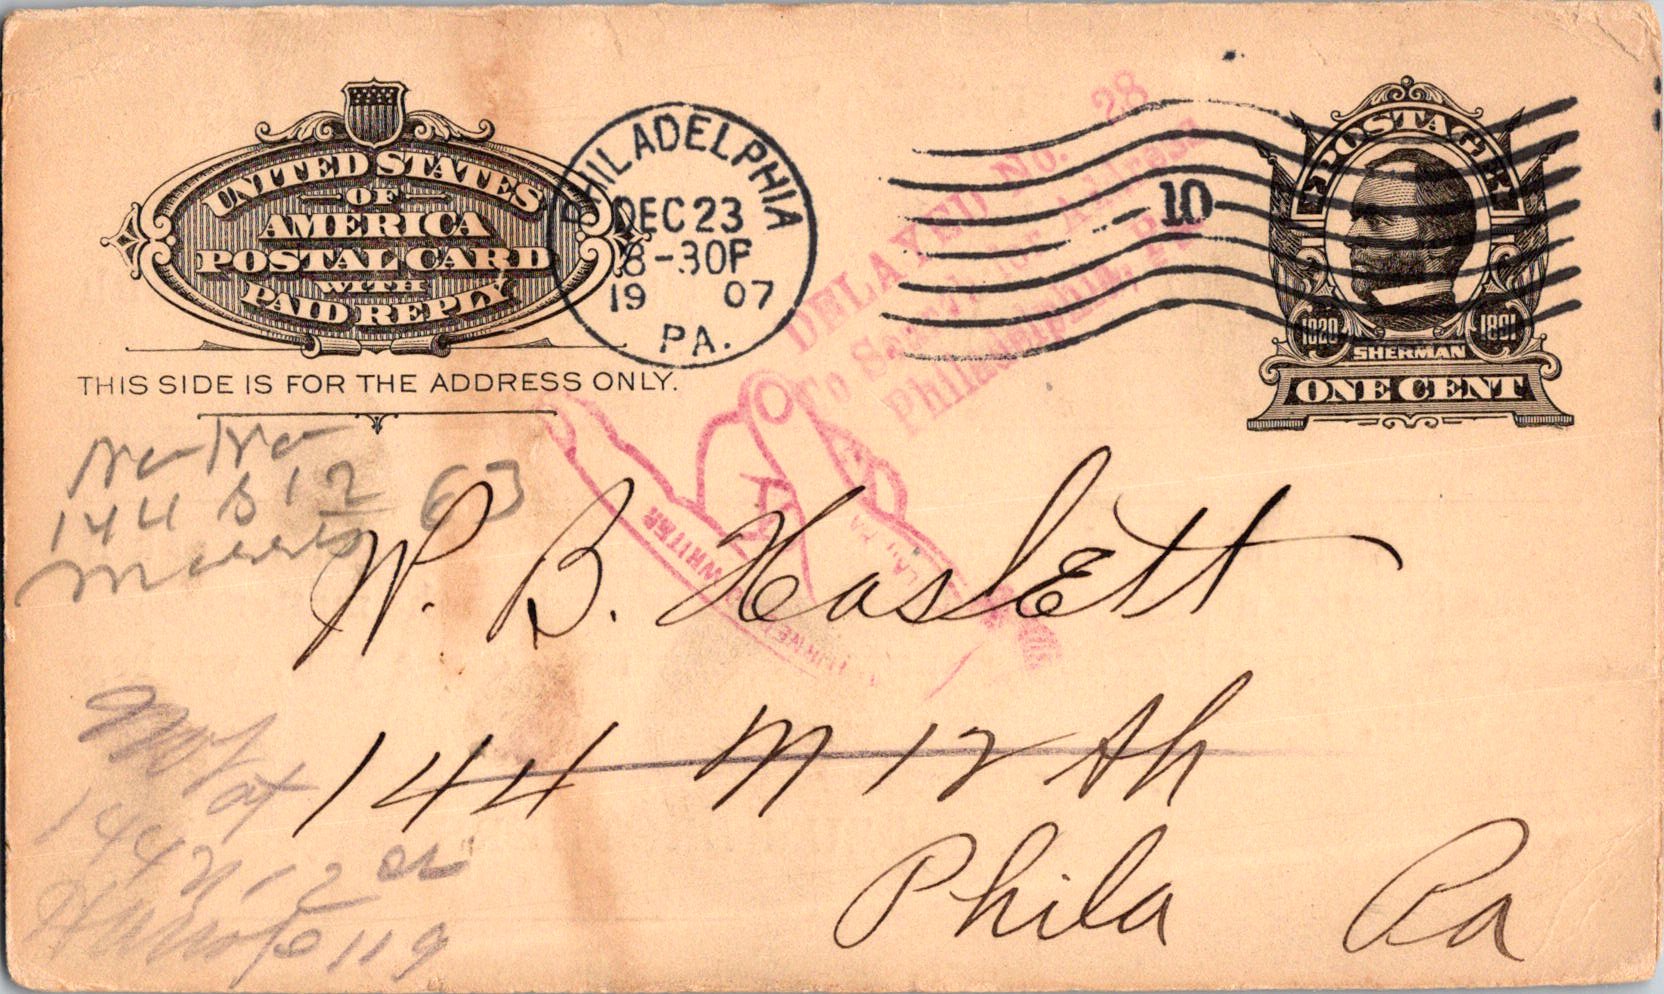 UNITED STATES
OF
AMERICA
POSTAL CARD
WITH
PAID REPLY
THIS SIDE IS FOR THE ADDRESS ONLY.
PHILADELPHIA
DEC 23
8-30P
19 07
PA.
10
POSTAGE
1820 1891
SHERMAN
ONE CENT
DELAYED No. 28
To Search for Address
Philadelphia, Pa.
144 S 12
63
W. B. Haslett
144 N 12th
Phila Pa
at
144 N 12 or
119